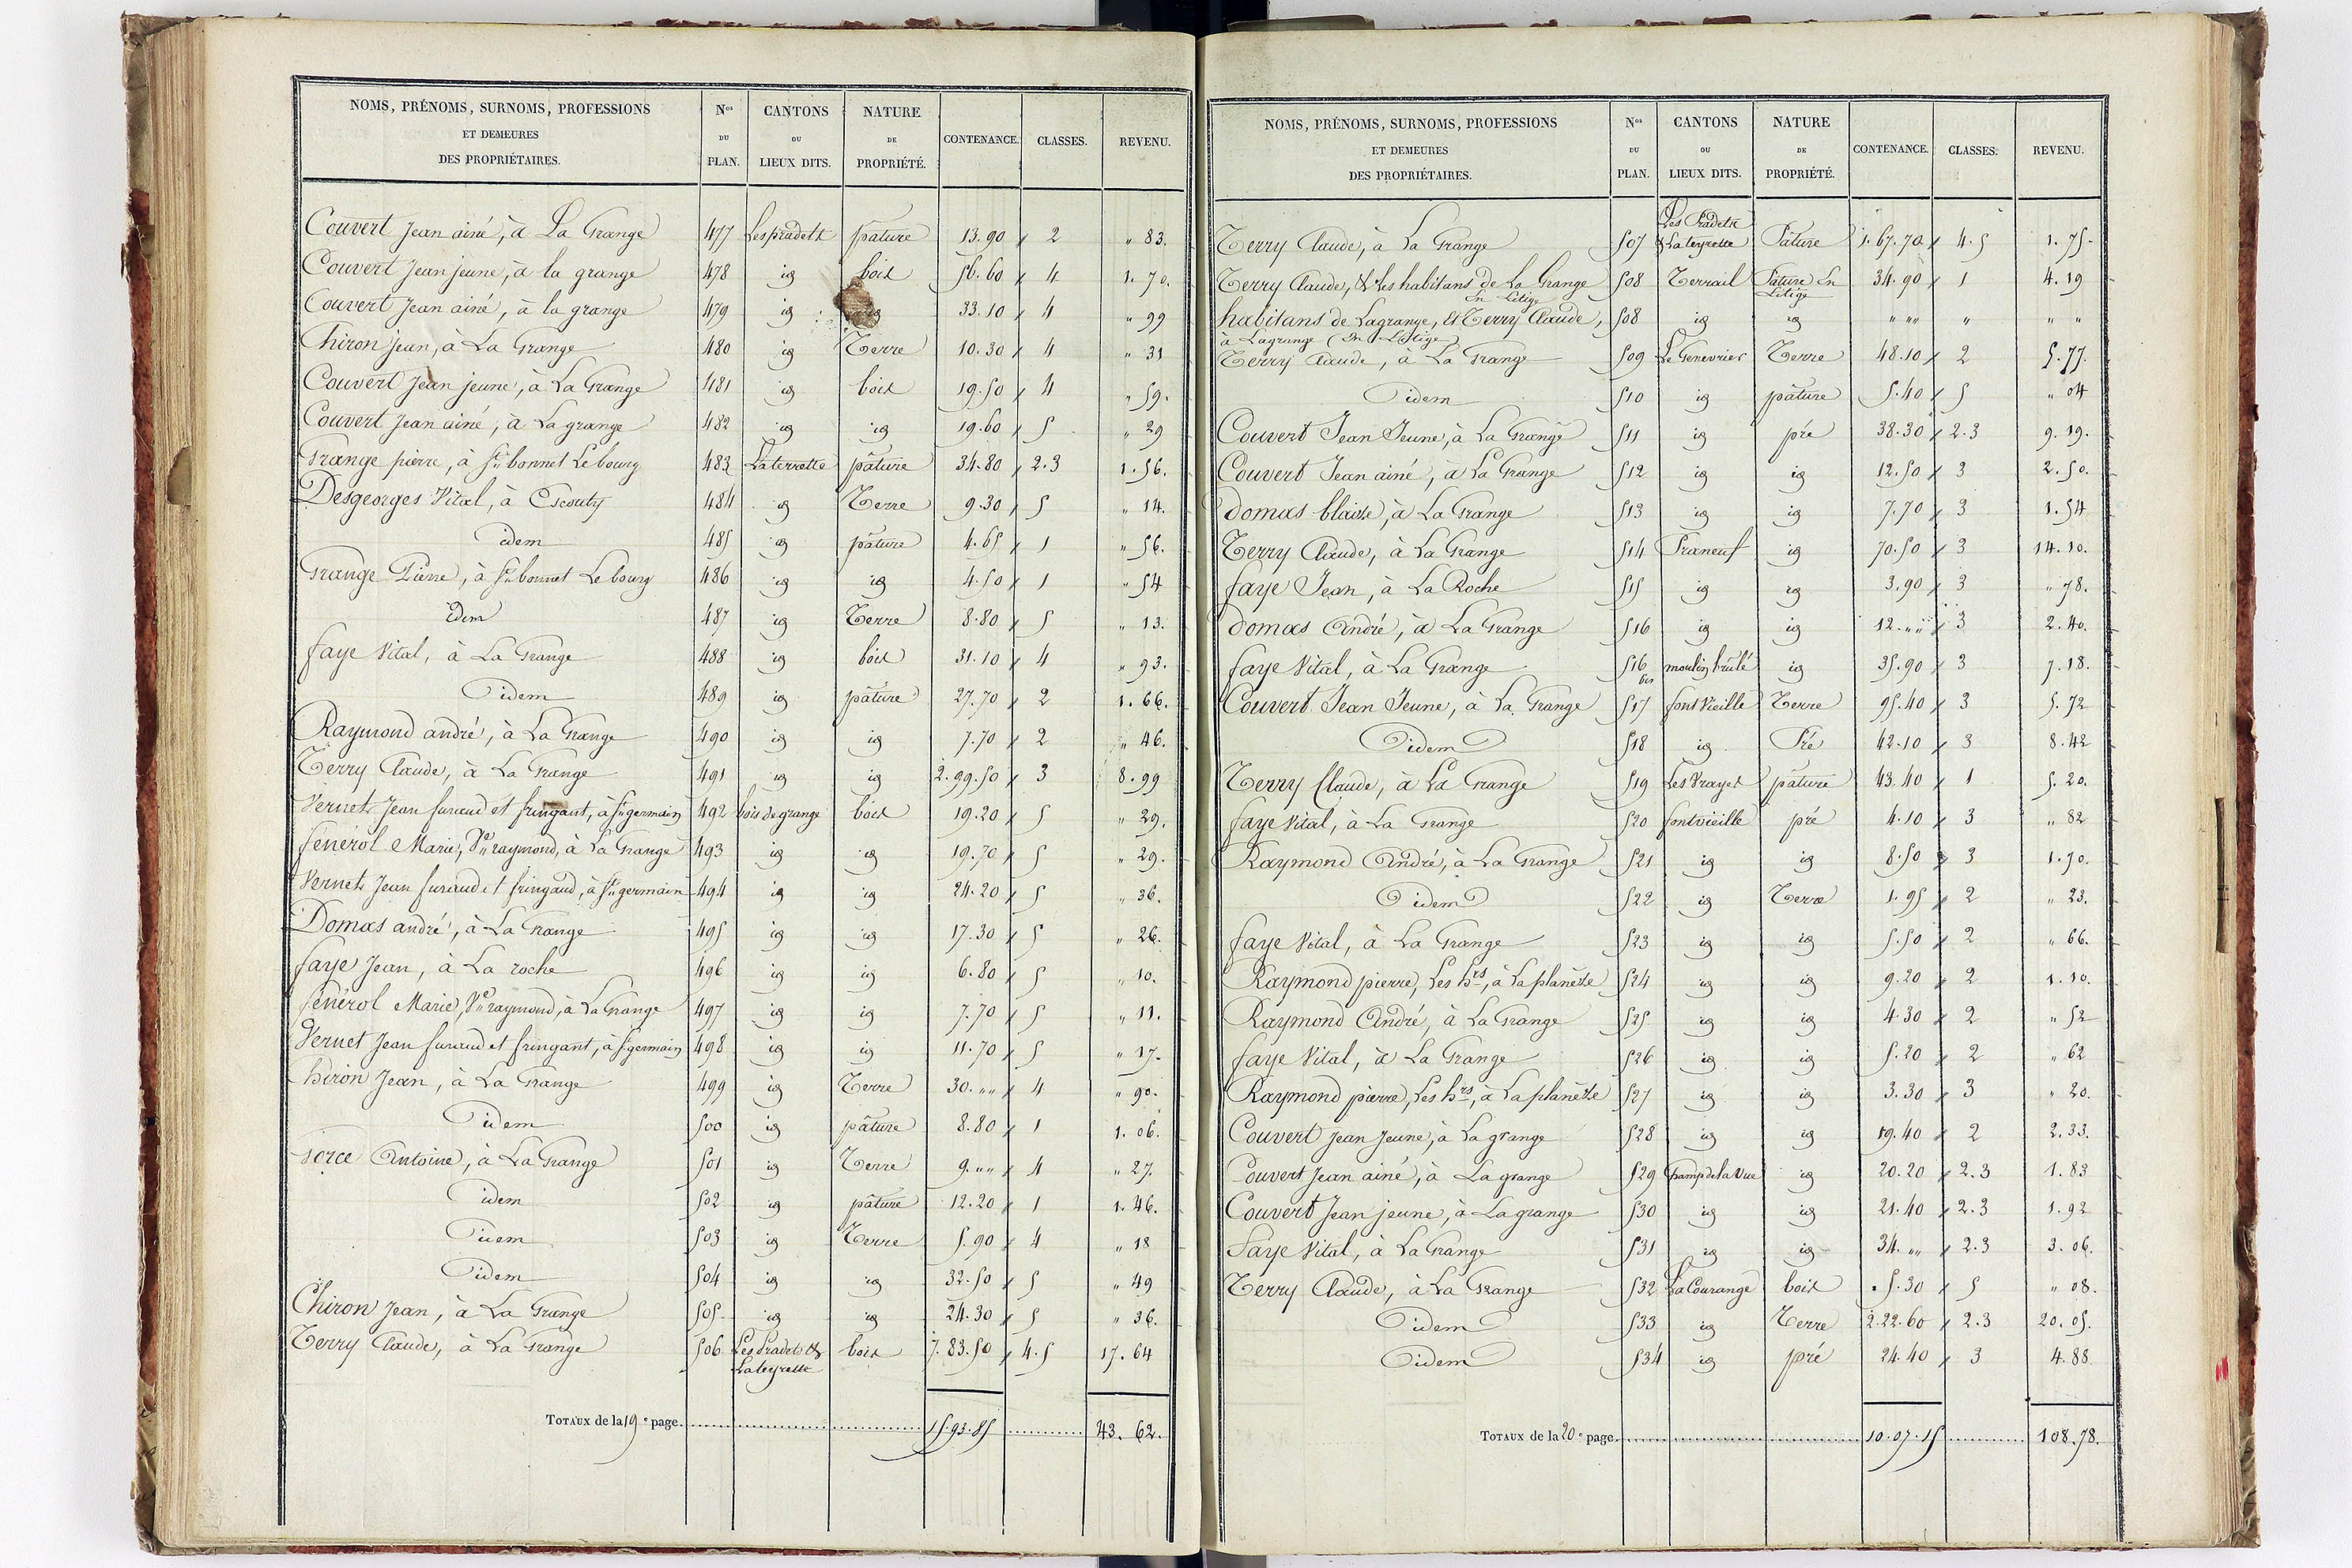 NOMS, PRÉNOMS, SURNOMS, PROFESSIONS ET DEMEURES DES PROPRIÉTAIRES. Nos DU PLAN. CANTONS OU LIEUX DITS. NATURE DE PROPRIÉTÉ. CONTENANCE. CLASSES. REVENU.
Couvert Jean ainé, à La Grange 477 Les pradets pâture 13.90 2 " 83.
Couvert Jean jeune, à la grange 478 id bois 56.60 4 1. 70.
Couvert Jean ainé, à la grange 479 id id 33.10 4 " 99
Chiron Jean, à La Grange 480 id Terre 10.30 4 " 31
Couvert Jean jeune, à La Grange 481 id bois 19.50 4 " 59.
Couvert Jean ainé, à La grange 482 id id 19.60 5 " 29
Grange pierre, à St bonnet Le bourg 483 La terrette pâture 34.80 2.3 1.56.
Desgeorges Vital, à Escouty 484 id Terre 9.30 5 " 14.
idem 485 id pâture 4.65 1 " 56.
Grange Pierre, à St bonnet Le bourg 486 id id 4.50 1 " 54
idem 487 id Terre 8.80 5 " 13.
faye Vital, à La Grange 488 id bois 31.10 4 " 93.
idem 489 id pâture 27.70 2 1. 66.
Raymond andré, à La Grange 490 id id 7.70 2 " 46.
Terry Claude, à La Grange 491 id id 2.99.50 3 8.99
Vernet Jean furaud et fringant, à St germain 492 bois de grange bois 19.20 5 " 29.
fénérol Marie, Ve raymond, à La Grange 493 id id 19.70 5 " 29.
Vernet Jean furaud et fringaud, à St germain 494 id id 24.20 5 " 36.
Domas andré, à La Grange 495 id id 17.30 5 " 26.
faye Jean, à La roche 496 id id 6.80 5 " 10.
fénérol Marie, Ve raymond, à La Grange 497 id id 7.70 5 " 11.
Vernet Jean furaud et fringant, à St germain 498 id id 11.70 5 " 17.
Chiron Jean, à La Grange 499 id Terre 30. "" 4 " 90.
idem 500 id pâture 8.80 1 1. 06.
Antoine, à La Grange 501 id Terre 9. "" 4 " 27.
idem 502 id pâture 12.20 1 1. 46.
idem 503 id Terre 5.90 4 " 18
idem 504 id id 32.50 5 " 49
Chiron Jean, à La Grange 505 id id 24.30 5 " 36.
Terry Claude, à La Grange 506 Les Pradets & bois 7.83.50 4.5 17. 64
La teyrette
TOTAUX de la 19e page 15.93.85 43. 62.
NOMS, PRÉNOMS, SURNOMS, PROFESSIONS ET DEMEURES DES PROPRIÉTAIRES. Nos DU PLAN. CANTONS OU LIEUX DITS. NATURE DE PROPRIÉTÉ. CONTENANCE. CLASSES. REVENU.
Les Pradets
Terry Claude, à La Grange 507 & La teyrette Pâture 1.67.70 4.5 1. 75.
Terry Claude, & Les habitans de La Grange 508 Terrail Pature En 34.90 1 4.19
En Litige Litige
habitans de Lagrange, Et Terry Claude, 508 id id " "" " " "
à Lagrange (En Litige)
Terry Claude, à La Grange 509 Le Genevrier Terre 48.10 2 5.77.
idem 510 id pâture 5.40 5 " 04
Couvert Jean Jeune, à La Grange 511 id pré 38.30 2.3 9.19.
Couvert Jean ainé, à La Grange 512 id id 12.50 3 2.50.
domas blaise, à La Grange 513 id id 7.70 3 1.54
Terry Claude, à La Grange 514 Praneuf id 70.50 3 14.10.
faye Jean, à La Roche 515 id id 3.90 3 " 78.
domas André, à La Grange 516 id id 12. "" 3 2.40.
faye Vital, à La Grange 516 bis moulin brûlé id 35.90 3 7.18.
Couvert Jean Jeune, à La Grange 517 font Vieille Terre 95.40 3 5.72
idem 518 id Pré 42.10 3 8.42
Terry Claude, à La Grange 519 Les Vrayes pâture 43.40 1 5.20.
faye Vital, à La Grange 520 fontvieille pré 4.10 3 " 82
Raymond André, à La Grange 521 id id 8.50 3 1.70.
idem 522 id Terre 1.95 2 " 23.
faye Vital, à La Grange 523 id id 5.50 2 " 66.
Raymond pierre, Les hrs, à La planète 524 id id 9.20 2 1.10.
Raymond André, à La Grange 525 id id 4.30 2 " 52
faye Vital, à La Grange 526 id id 5.20 2 " 62
Raymond pierre, Les hrs, à La planète 527 id id 3.30 3 " 20.
Couvert Jean Jeune, à La grange 528 id id 19.40 2 2.33.
Couvert Jean ainé, à La grange 529 Champ de la Vue id 20.20 2.3 1.83
Couvert Jean jeune, à La grange 530 id id 21.40 2.3 1.92
Faye Vital, à La Grange 531 id id 34. "" 2.3 3.06.
Terry Claude, à La Grange 532 La Courange bois 5.30 5 " 08.
idem 533 id Terre 2.22.60 2.3 20.05.
idem 534 id pré 24.40 3 4.88
TOTAUX de la 20e page 10.07.15 108.78.